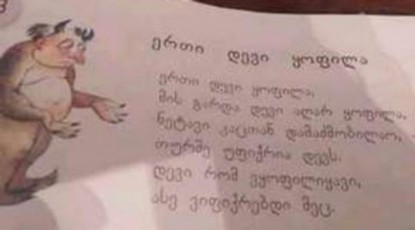 ერთი დევი ყოფილა
ერთი დევი ყოფილა,
მის გარდა დევი აღარ ყოფილა,
ნეტავი კაცთან დამაძმობილაო,
თურმე უფიქრია დევს.
დევი რომ ვყოფილიყავი,
ასე ვიფიქრებდი მეც.